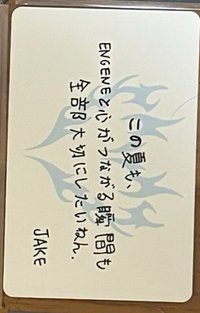 この夏も、
ENGENEと心がつながる瞬間も
全部大切にしたいねん.
JAKE